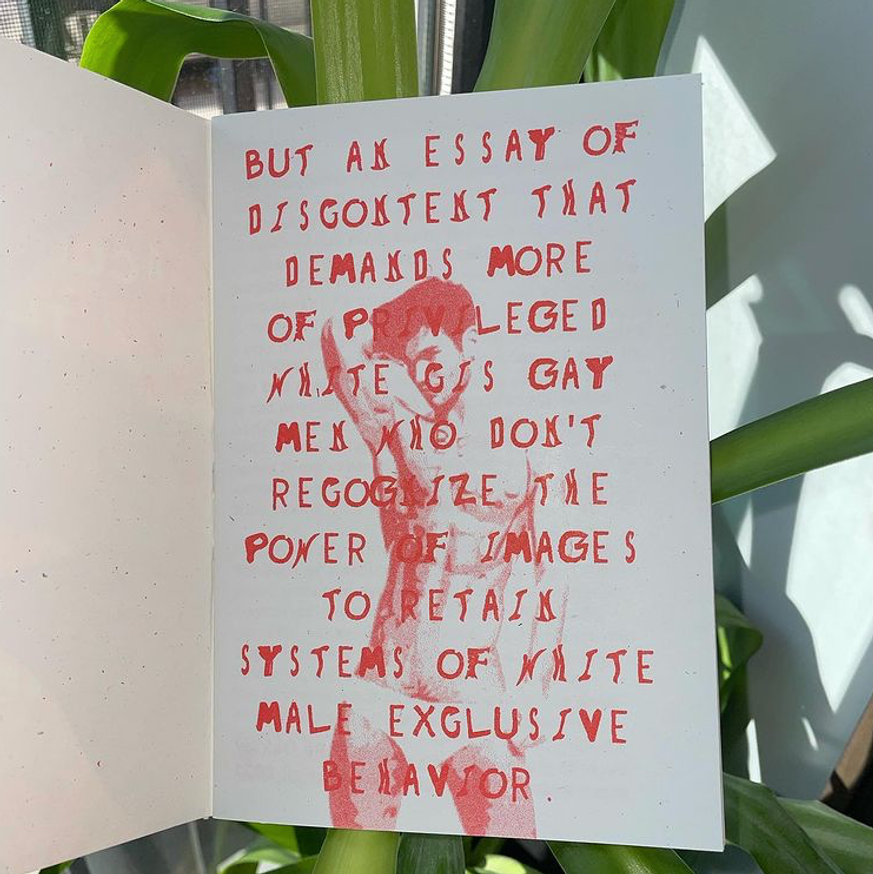 BUT AN ESSAY OF
DISCONTENT THAT
DEMANDS MORE
OF PRIVILEGED
WHITE CIS GAY
MEN WHO DON'T
RECOGNIZE THE
POWER OF IMAGES
TO RETAIN
SYSTEMS OF WHITE
MALE EXCLUSIVE
BEHAVIOR.